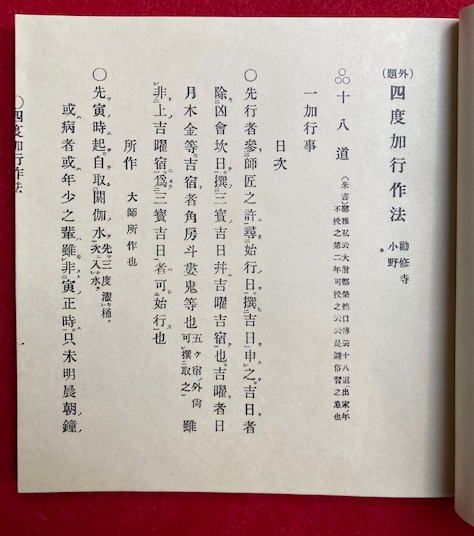 (外題) 四度加行作法 勧修寺 小野
十八道
一加行事
日次
○先行者參師匠之許尋始行日。撰吉日申之。吉日者
除凶會坎日。撰三寳吉日并吉曜吉宿也。吉曜者日
月木金等。吉宿者角房斗婁鬼等也 五ケ宿ノ外尙可撰取之 雖
非上吉曜宿。爲三寳吉日者可始行也
所作 大師所作也
○先寅時起。自取閼伽水。先ツ三度濯桶ヲ次入水ヲ
或病者或年少之輩。雖非寅正時。只未明晨朝鐘
○四度加行作法 一